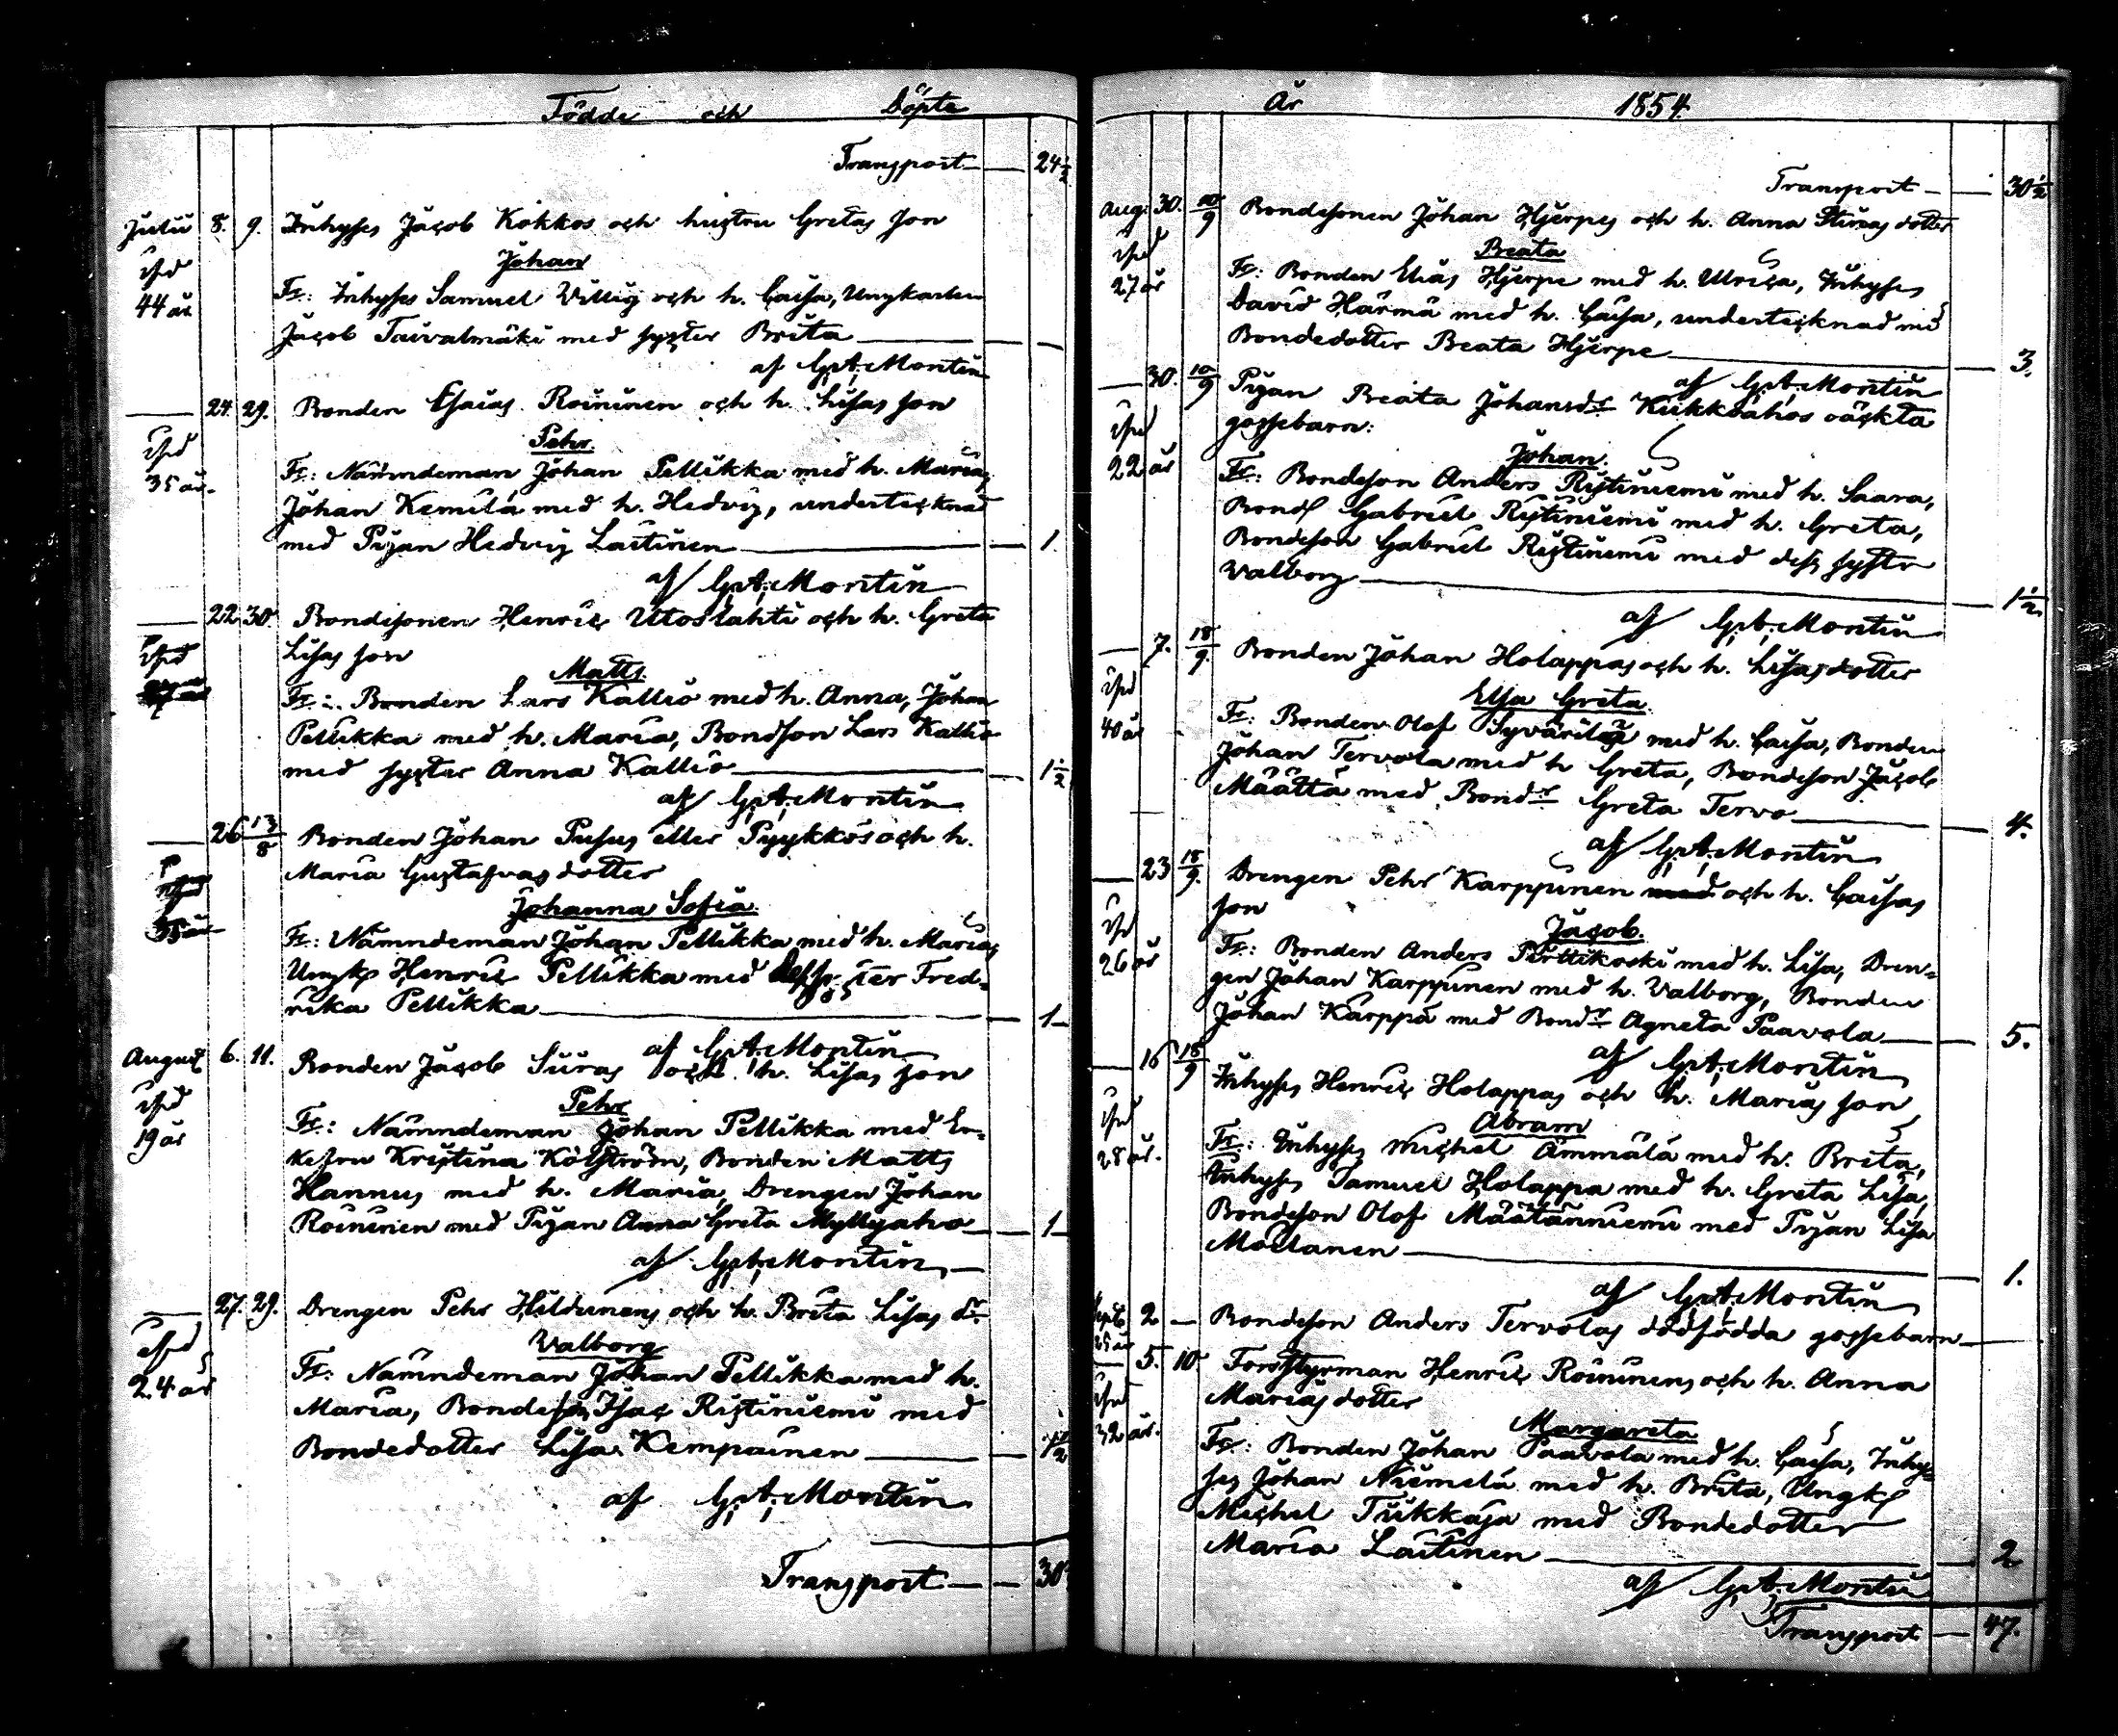 Födde och Döpte
Transport — 24 1/2
Julii 8. 9. Inhyses Jacob Kokkos och hustru Gretas son
Johan
44 år
Fr: Inhyses Samuel Villig och h. Caisa, Ungkarlen
Jacob Taivalmäki med syster Brita —
af G. A. Montin
— 24. 29. Bonden Esaias Roininen och h. Lisas son
Pehr.
35 år.
Fr: Nämndeman Johan Pellikka med h. Maria,
Johan Kemilä med h. Hedvig, undertecknad
med Pigan Hedvig Laitinen — 1.
af G. A. Montin
— 22 30. Bondesonen Henric Utoslahti och h. Greta
Lisas son
Matts.
Fr: Bonden Lars Kallio med h. Anna, Johan
Pellikka med h. Maria, Bondson Lars Kallio
med syster Anna Kallio — 1 1/2
af G. A. Montin
— 26 13/8 Bonden Johan Pusus eller Pyykkös och h.
Maria Gustafvas dotter
Johanna Sofia.
35 år
Fr: Nämndeman Johan Pellikka med h. Maria,
Ungk Henric Pellikka med dess syster Fred-
rika Pellikka — 1 —
af G. A. Montin
August 6. 11. Bonden Jacob Siiras och h. Lisas son
Pehr
19 år
Fr: Nämndeman Johan Pellikka med En-
kefru Kristina Kölström, Bonden Matts
Hannus med h. Maria, Drengen Johan
Roininen med Pigan Anna Greta Myllyaho — 1 —
af G. A. Montin
— 27. 29. Drengen Pehr Hildunens och h. Brita Lisas dr.
Valborg
24 år
Fr: Nämndeman Johan Pellikka med h.
Maria, Bondeson Isac Ristiniemi med
Bondedotter Lisa Kempainen — 1/2
af G. A. Montin
Transport — 30
År 1854.
Transport — 30 1/2
Aug. 30. 10/9 Bondesonen Johan Hjerpes och h. Anna Stinas dotter
Beata
27 år
Fr: Bonden Elias Hjerpe med h. Ulrica, Inhyses
David Härmä med h. Caisa, undertecknad med
Bondedotter Beata Hjerpe — 3.
af G. A. Montin
— 30. 10/9 Pigan Beata Johansdr Kiikkoahos oäckta
gossebarn:
22 år
Johan.
Fr: Bondeson Anders Ristiniemi med h. Saara,
Bonds Gabriel Ristiniemi med h. Greta,
Bondeson Gabriel Ristiniemi med dess syster
Valborg — 1 1/2
af G. A. Montin
— 7. 18/9. Bonden Johan Holappas och h. Lisas dotter
Elsa Greta.
40 år
Fr: Bonden Olof Syvärilä med h. Caisa, Bonden
Johan Tervola med h Greta, Bondeson Jacob
Määttä med Bondr Greta Tervo — 4.
af G. A. Montin
— 23 18/9. Drengen Pehr Karppinen med och h. Caisas
son
Jacob.
26 år
Fr: Bonden Anders Pirttikoski med h. Lisa, Dren-
gen Johan Karppinen med h. Valborg, Bonden
Johan Karppa med Bondr Agneta Paavola — 5.
af G. A. Montin
— 16 18/9 Inhyses Henric Holappas och h. Marias son
Abram
28 år.
Fr: Inhyses Michel Ämmälä med h. Brita,
Inhyses Samuel Holappa med h. Greta Lisa,
Bondeson Olof Määtänniemi med Pigan Lisa
Moilanen — 1.
af G. A. Montin
Sept. 2 — Bondeson Anders Tervolas dödfödda gossebarn —
— 5. 10. Torpstyrman Henric Roininens och h. Anna
Marias dotter
32 år.
Margareta
Fr: Bonden Johan Paavola med h. Caisa, Inhy-
ses Johan Niemelä med h. Brita, Ungk
Michel Tiikkaja med Bondedotter
Maria Laitinen — 2
af G. A. Montin
Transport — 47.